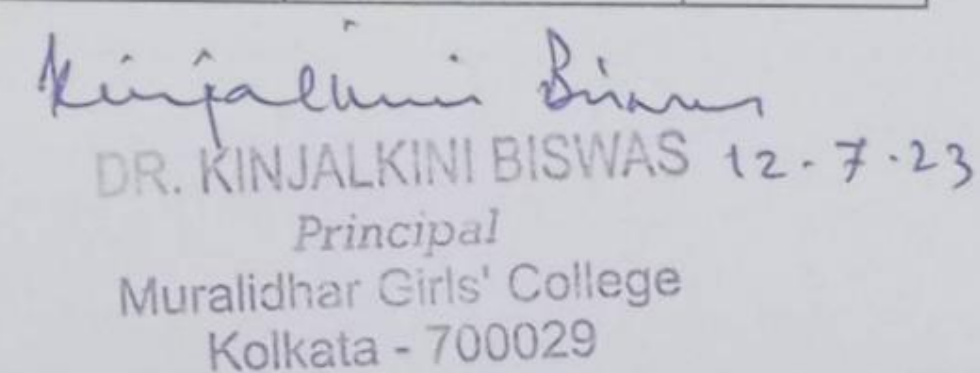 Kinjalkini Biswas
DR. KINJALKINI BISWAS 12.7.23
Principal
Muralidhar Girls' College
Kolkata - 700029